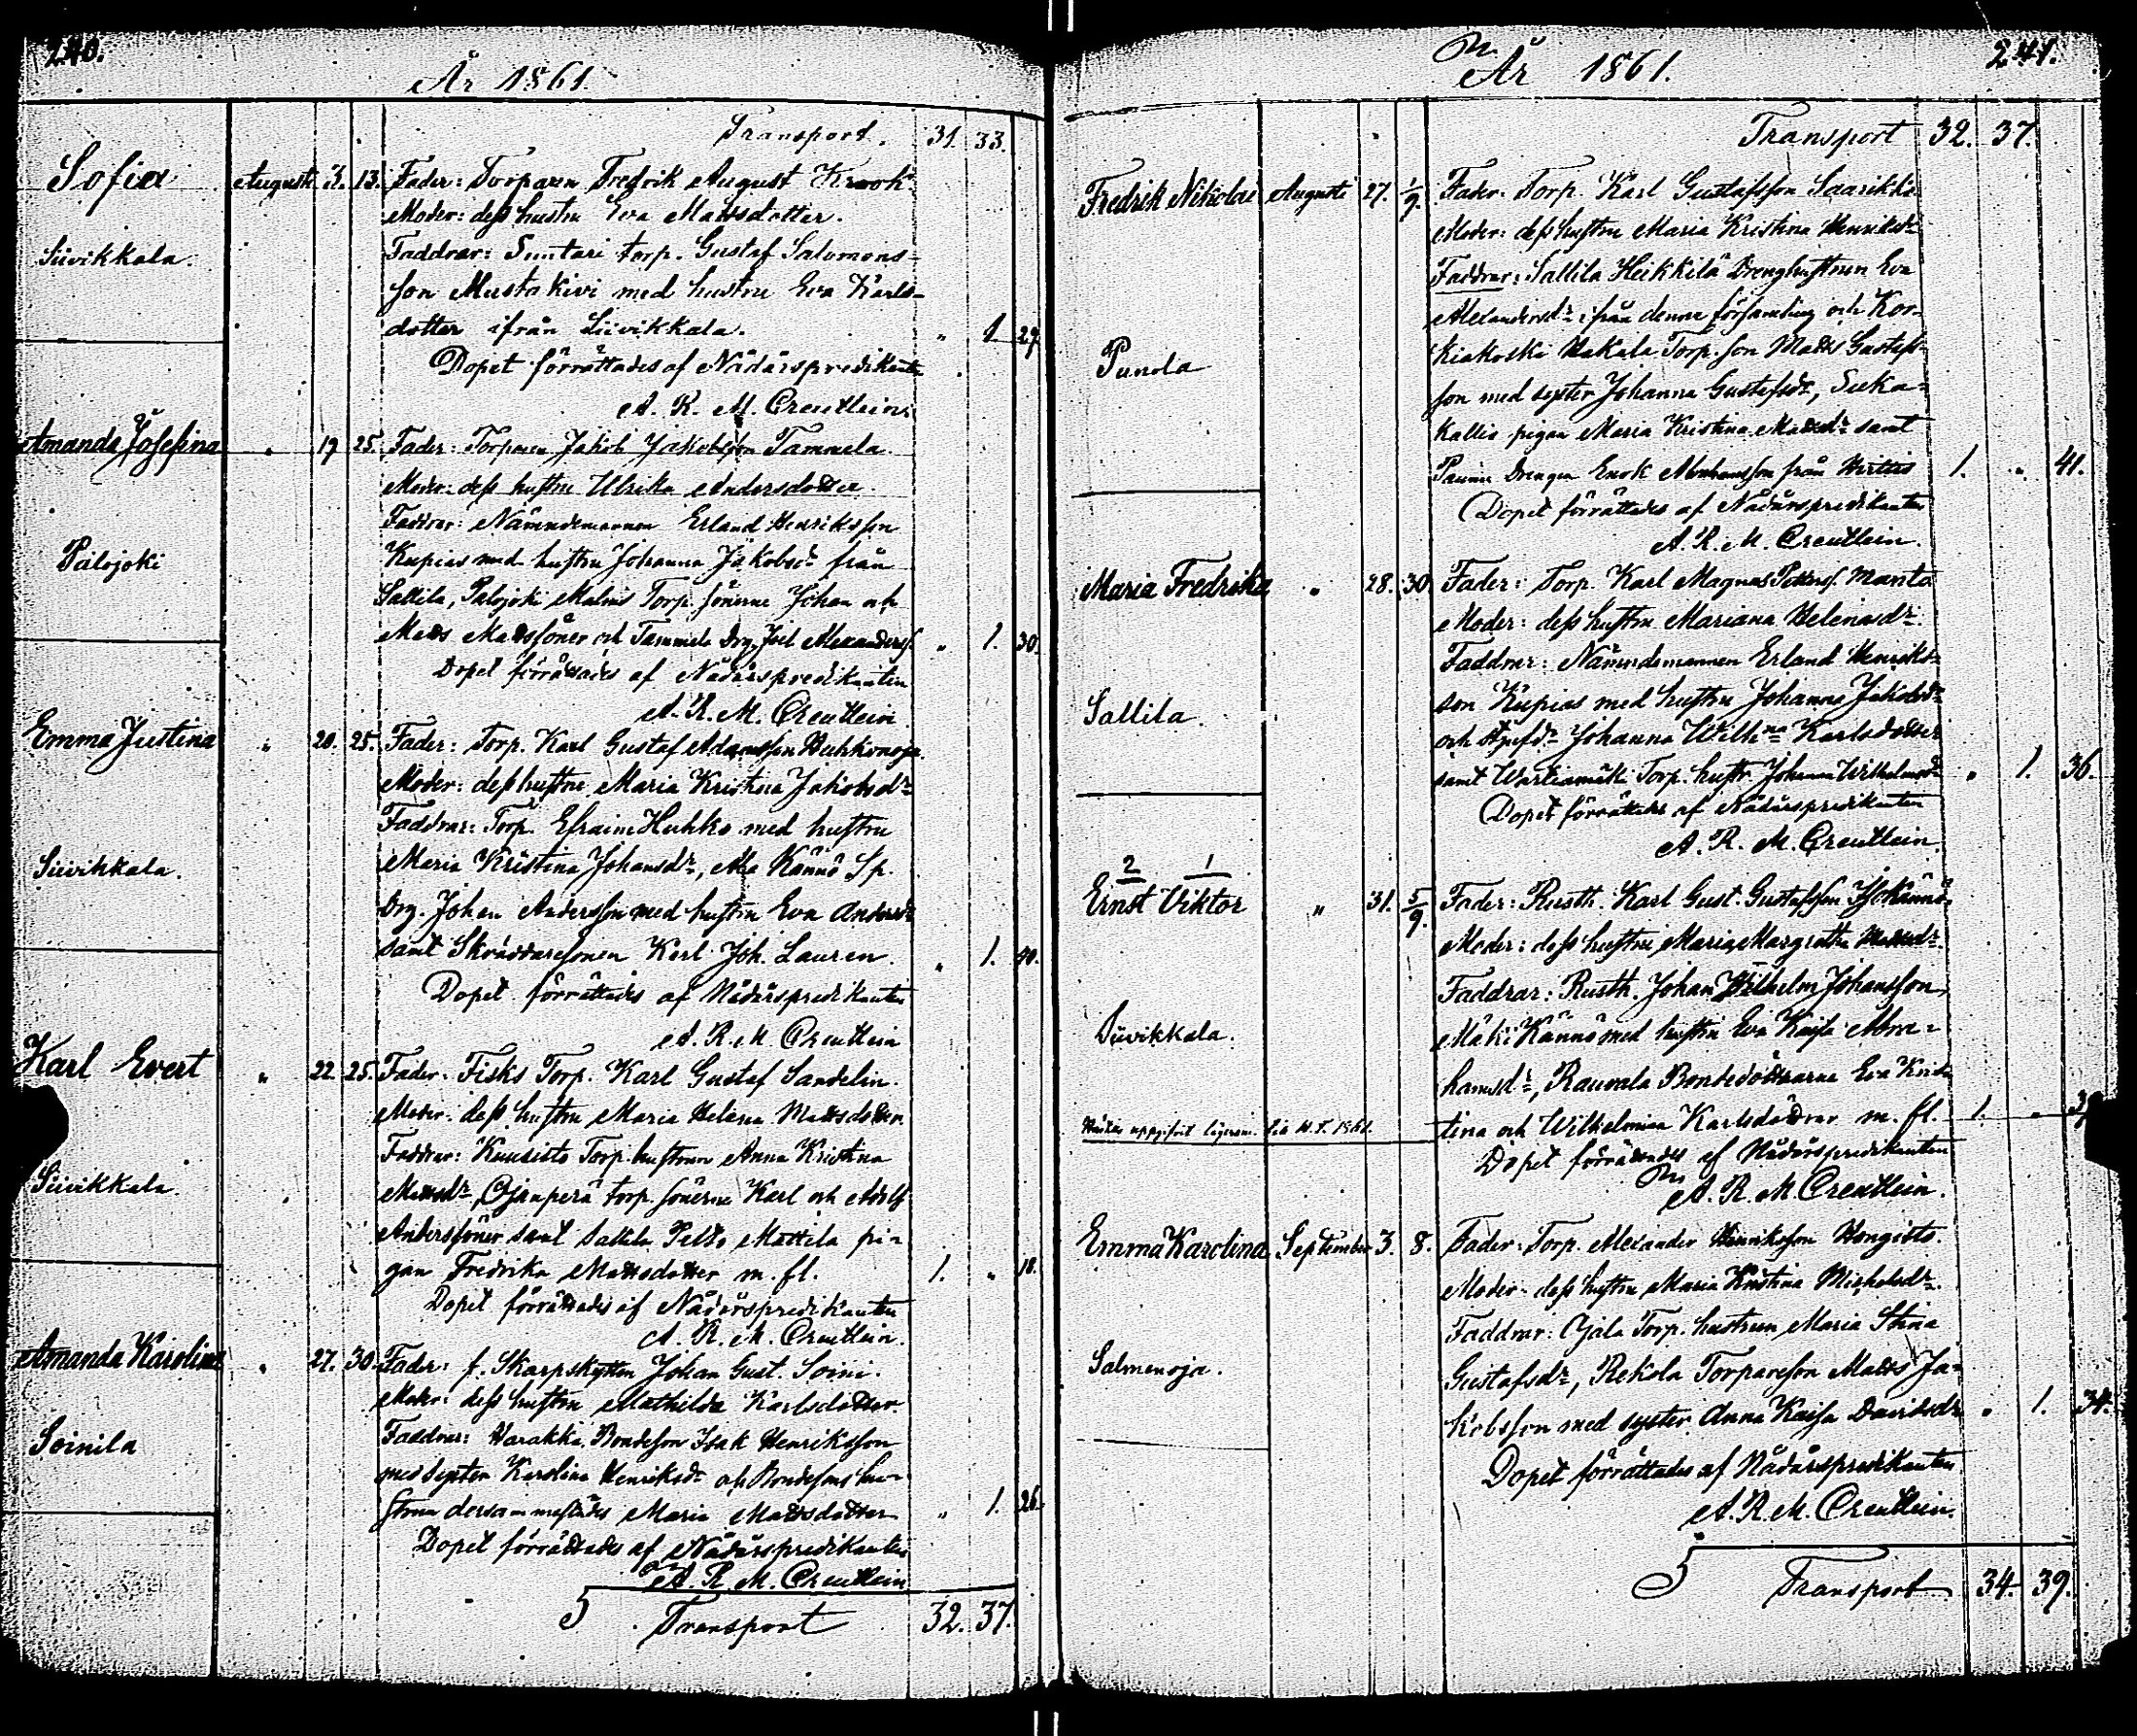 240.
År 1861.
Transport. 31. 33.
Sofia
Siivikkala.
Augusti 3. 13. Fader: Torparen Fredrik August Krook
Moder: dess hustru Eva Mattsdotter.
Faddrar: Suntari torp. Gustaf Salomons-
son Mustakivi med hustru Eva Karls-
dotter ifrån Siivikkala. " 1 27
Dopet förrättades af Nådårspredikanten
A. R. M. Creutlein.
Amanda Josefina
Palojoki
" 19 25. Fader: Torparen Jakob Jakobsson Tammela.
Moder: dess hustru Ulrika Andersdotter.
Faddrar: Nämndemannen Erland Henriksson
Kupias med hustru Johanna Jakobsdr från
Sallila, Palojoki Malmis Torp. sönerne Johan och
Matts Mattssöner och Tammela Drg. Joel Alexanderss. " 1. 30.
Dopet förrättades af Nådårspredikanten
A. R. M. Creutlein
Emma Justina
Siivikkala.
" 20. 25. Fader: Torp. Karl Gustaf Adamsson Huhkonoja.
Moder: dess hustru Maria Kristina Jakobsdr
Faddrar: Torp. Efraim Huhko med hustru
Maria Kristina Johansdr, Ala Kännö Sp.
Drg. Johan Andersson med hustru Eva Andersdr
samt Skräddaresonen Karl Joh. Lauren. " 1. 40.
Dopet förrättades af Nådårspredikanten
A. R. M. Creutlein
Karl Evert
Siivikkala.
" 22. 25. Fader: Fisks Torp. Karl Gustaf Sandelin.
Moder: dess hustru Maria Helena Mattsdotter.
Faddrar: Kuusisto Torp. hustrun Anna Kristina
Mattsdr, Ojanperä torp. sönerne Karl och Adolf
Anderssöner samt Sallila Pelto Mattila pi-
gan Fredrika Mattsdotter m. fl. 1. " 18.
Dopet förrättades af Nådårspredikanten
A. R. M. Creutlein.
Amanda Karolina
Soinila
" 27. 30. Fader: f. Skarpskytten Johan Gust. Soini.
Moder: dess hustru Mathilda Karlsdotter
Faddrar: Harakka Bondeson Isak Henriksson
med syster Karolina Henriksdr och Bondesons hu-
strun dersammastädes Maria Mattsdotter " 1. 26.
Dopet förrättades af Nådårspredikanten
A. R. M. Creutlein
5 Transport 32. 37.
241.
År 1861.
Transport 32. 37.
Fredrik Nikolai
Punola
Augusti 27. 1/9. Fader: Torp. Karl Gustafsson Saarikko
Moder: dess hustru Maria Kristina Henriksdr
Faddrar: Sallila Heikkilä Drenghustrun Eva
Alexandersdr ifrån denna församling och Kor-
kiakoski Hakala Torp. son Matts Gustafs-
son med syster Johanna Gustafsdr, Suka-
kallio pigan Maria Kristina Mattsdr samt
Paunu Drengen Enok Abrahamsson från Virttis 1. " 41.
Dopet förrättades af Nådårspredikanten
A. R. M. Creutlein.
Maria Fredrika
Sallila.
" 28. 30. Fader: Torp. Karl Magnus Petterss. Manta
Moder: dess hustru Mariana Helenasdr.
Faddrar: Nämndemannen Erland Henriks-
son Kupias med hustru Johanna Jakobsdr
och Styfdr Johanna Wilhna Karlsdotter
samt Wartiamäki Torp. hustr. Johanna Wilhelmsdr " 1. 36.
Dopet förrättades af Nådårspredikanten
A. R. M. Creutlein.
2 1
Ernst Viktor
Siivikkala.
" 31. 5/9. Fader: Rusth. Karl Gust. Gustafsson Isokännö.
Moder: dess hustru Maria Margretha Mattsdr.
Faddrar: Rusth. Johan Wilhelm Johansson
Mäki Kännö med hustru Eva Kaisa Abra-
hamsdr, Rauvala Bondedöttrarne Eva Kris-
tina och Wilhelmina Karlsdöttrar m. fl. 1. "
Dopet förrättades af Nådårspredikanten
A. R. M. Creutlein.
Emma Karolina
Salmenoja.
September 3. 8. Fader: Torp. Alexander Henriksson Hongisto.
Moder: dess hustru Maria Kristina Michelsdr.
Faddrar: Ojala Torp. hustrun Maria Stina
Gustafsdr, Rekola Torpareson Matts Ja-
kobsson med syster Anna Kaisa Davidsdr " 1. 34.
Dopet förrättades af Nådårspredikanten
A. R. M. Creutlein.
5 Transport 34. 39.